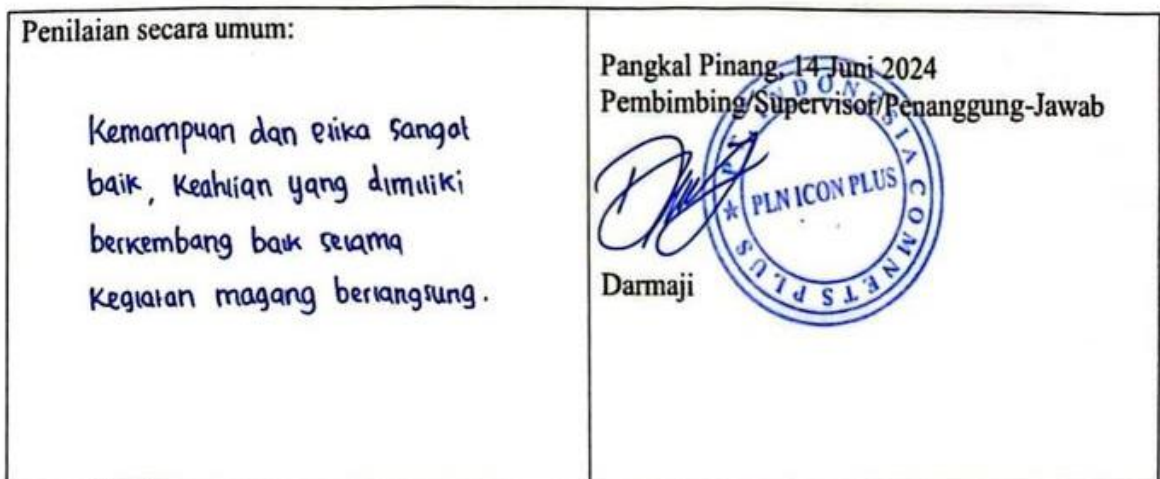 Penilaian secara umum:
Kemampuan dan etika sangat
baik, Keahlian yang dimiliki
berkembang baik selama
Kegiatan magang berlangsung.
Pangkal Pinang, 14 Juni 2024
Pembimbing/Supervisor/Penanggung-Jawab
PT INDONESIA COMNETS PLUS
PLN ICON PLUS
Darmaji